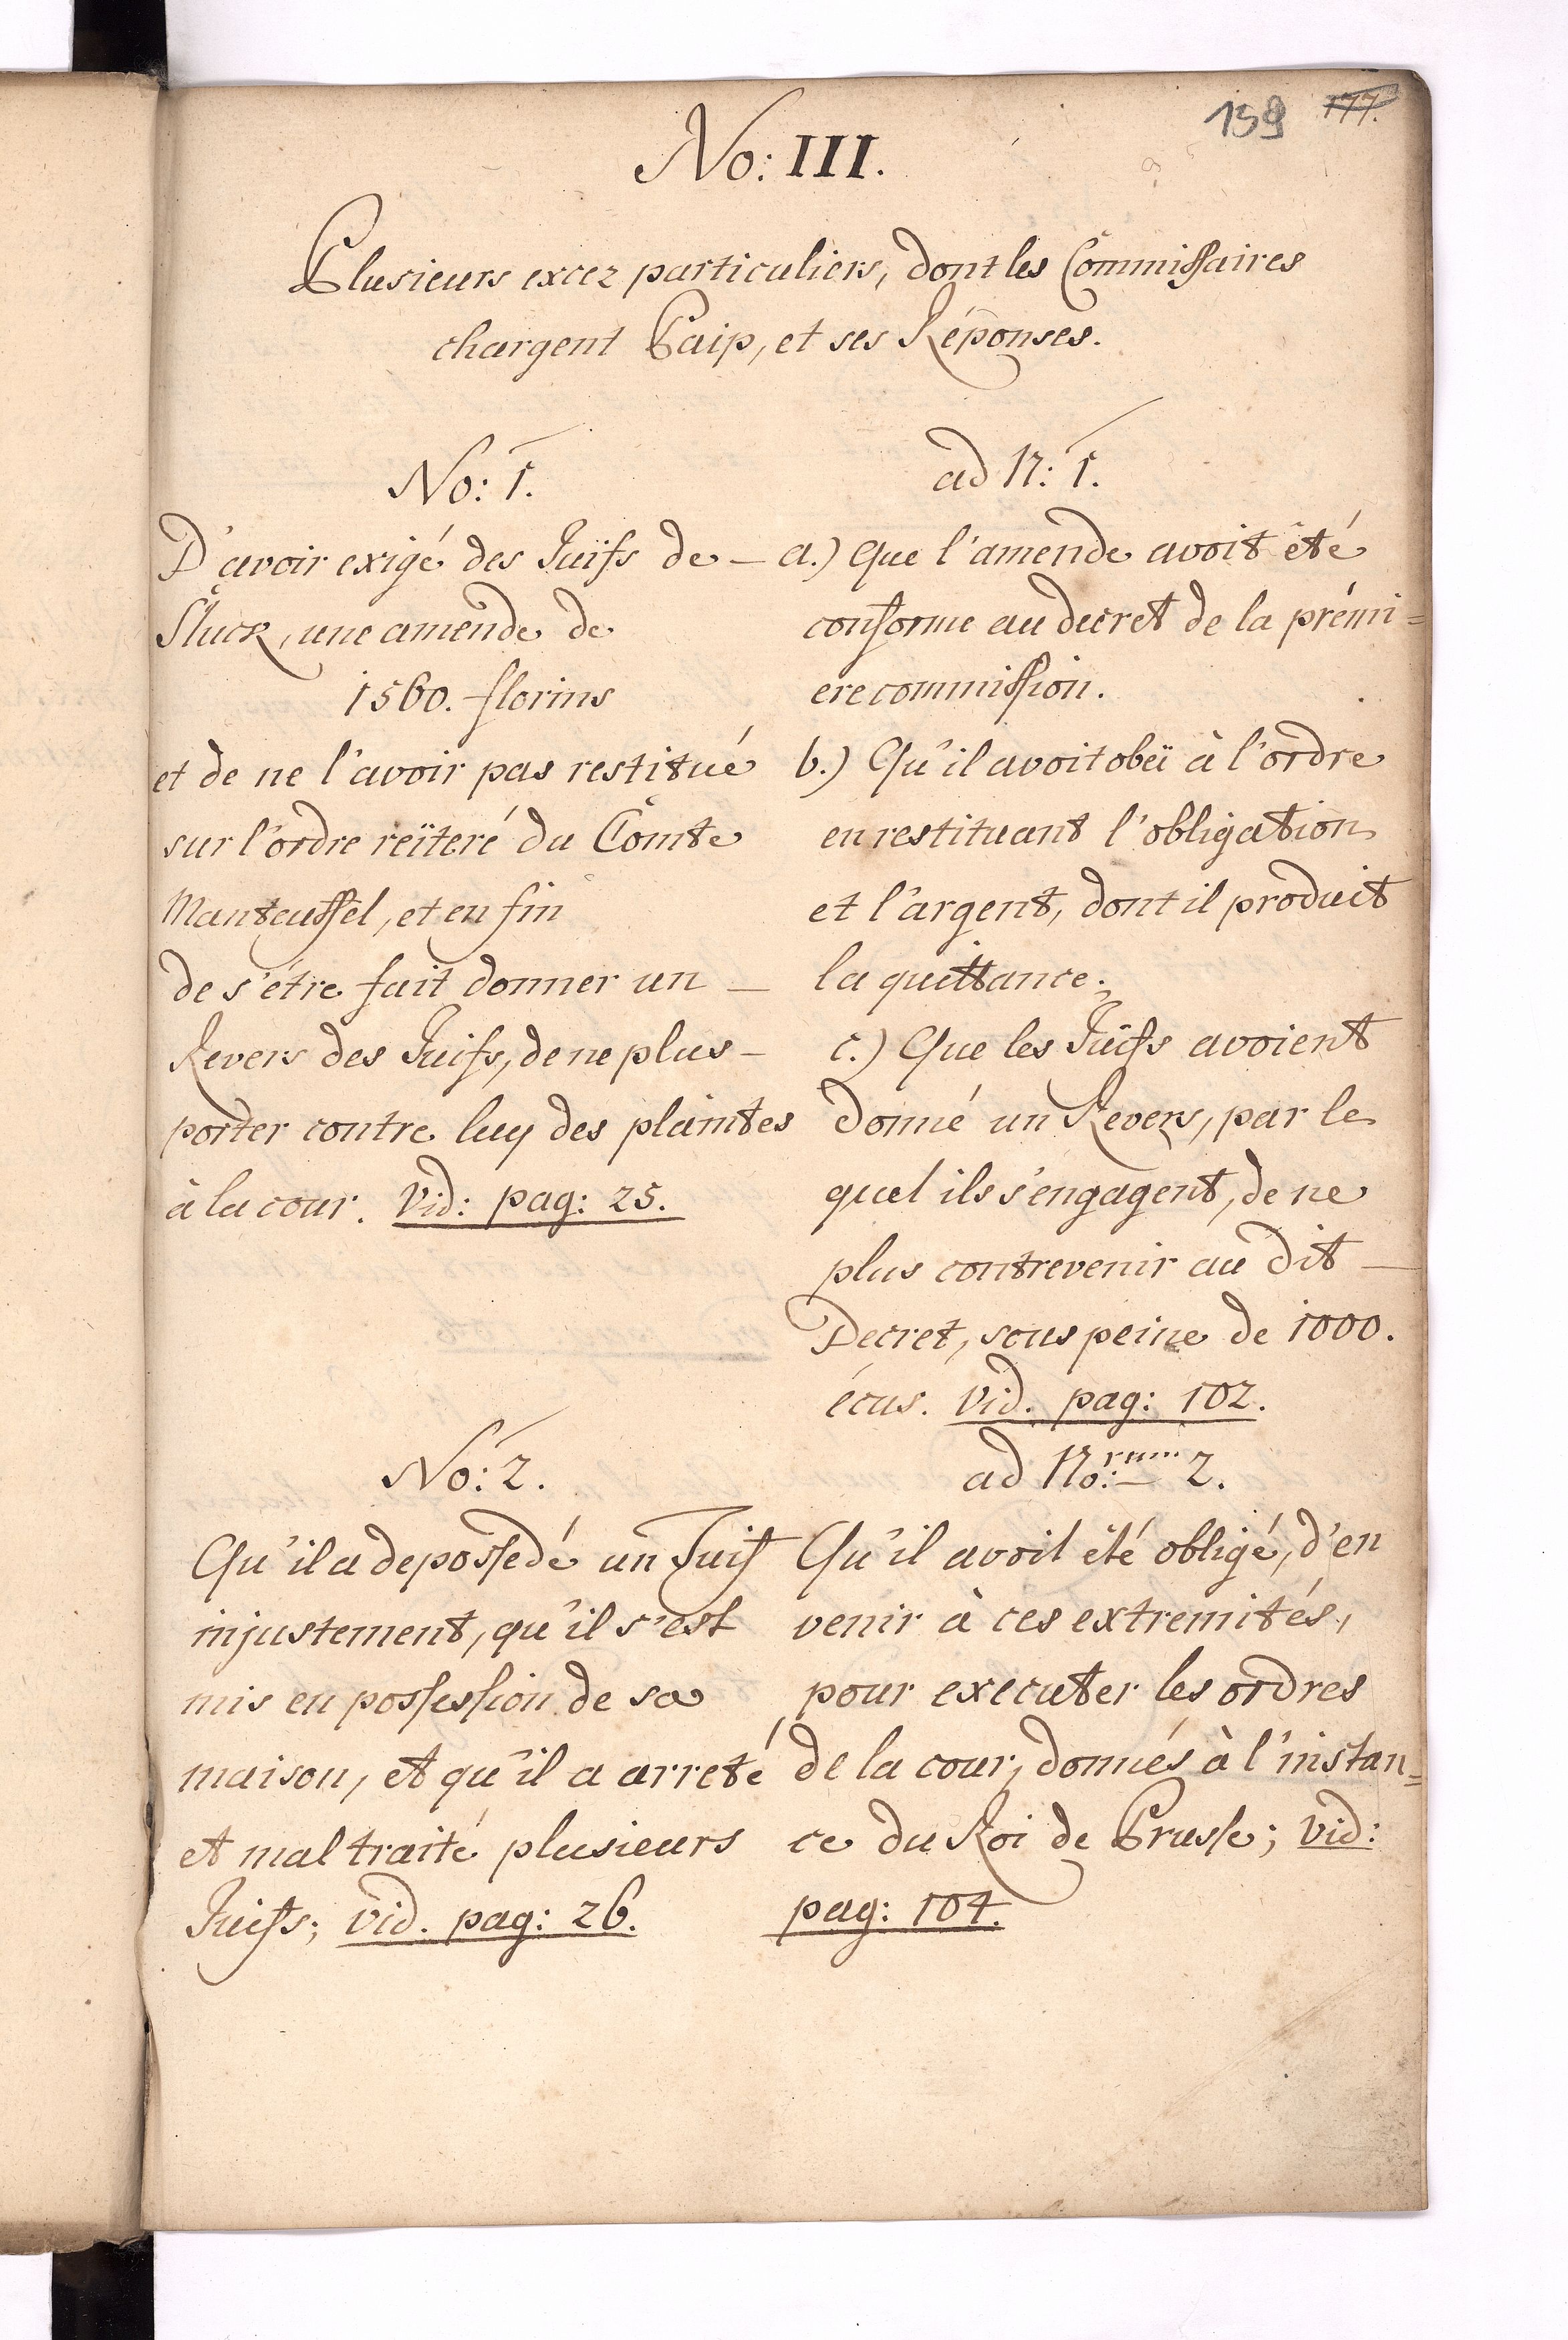 159 177.
No: III.
Plusieurs excez particuliers, dont les Commissaires
chargent Paip, et ses Réponses.
No: 1.
D'avoir exigé des Juifs de
Sluck, une amende de
1560. florins
et de ne l'avoir pas restitué
sur l'ordre reïteré du Comte
Manteuffel, et en fin
de s'étre fait donner un
Revers des Juifs, de ne plus
porter contre luy des plaintes
à la cour. Vid: pag: 25.
ad N: 1.
a.) Que l'amende avoit été
conforme au decret de la prémi=
ere commission.
b.) Qu'il avoit obëi à l'ordre
en restituant l'obligation
et l'argent, dont il produit
la quittance.
c.) Que les Juifs avoient
donné un Revers, par le
quel ils s'engagent, de ne
plus contrevenir au dit
Decret, sous peine de 1000.
écus. Vid. pag: 102.
No: 2.
Qu'il a depossedé un Juif
injustement, qu'il s'est
mis en possession de sa
maison, et qu'il a arreté
et mal traité plusieurs
Juifs; vid. pag: 26.
ad No:rum 2.
Qu'il avoit été obligé, d'en
venir à ces extremités,
pour executer les ordres
de la cour, donnés à l'instan=
ce du Roi de Prusse; vid:
pag: 104.